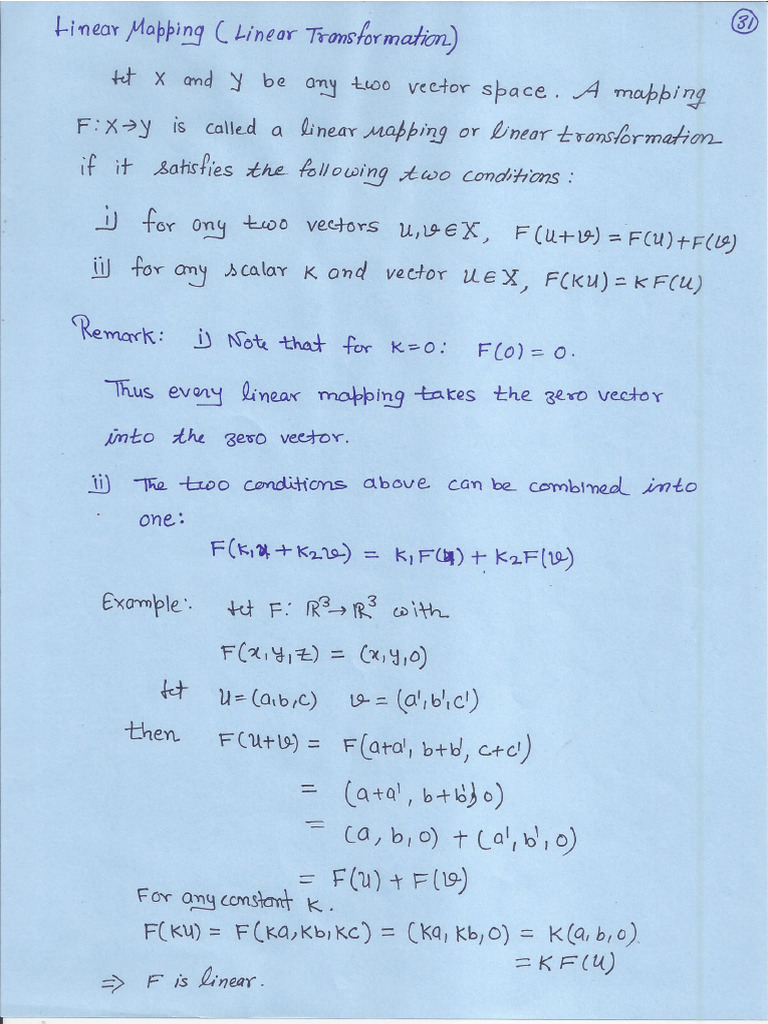 31
Linear Mapping (Linear Transformation)
Let X and Y be any two vector space. A mapping
F: X→Y is called a linear mapping or linear transformation
if it satisfies the following two conditions:
i) for any two vectors u,v∈X, F(u+v) = F(u)+F(v)
ii) for any scalar K and vector u∈X, F(Ku) = K F(u)
Remark: i) Note that for K=0: F(0) = 0.
Thus every linear mapping takes the zero vector
into the zero vector.
ii) The two conditions above can be combined into
one:
F(K₁u + K₂v) = K₁F(u) + K₂F(v)
Example: Let F: ℝ³→ℝ³ with
F(x,y,z) = (x,y,0)
Let u=(a,b,c) v=(a',b',c')
then F(u+v) = F(a+a', b+b', c+c')
= (a+a', b+b', 0)
= (a, b, 0) + (a', b', 0)
= F(u) + F(v)
For any constant K.
F(Ku) = F(Ka, Kb, Kc) = (Ka, Kb, 0) = K(a, b, 0)
= K F(u)
⇒ F is linear.